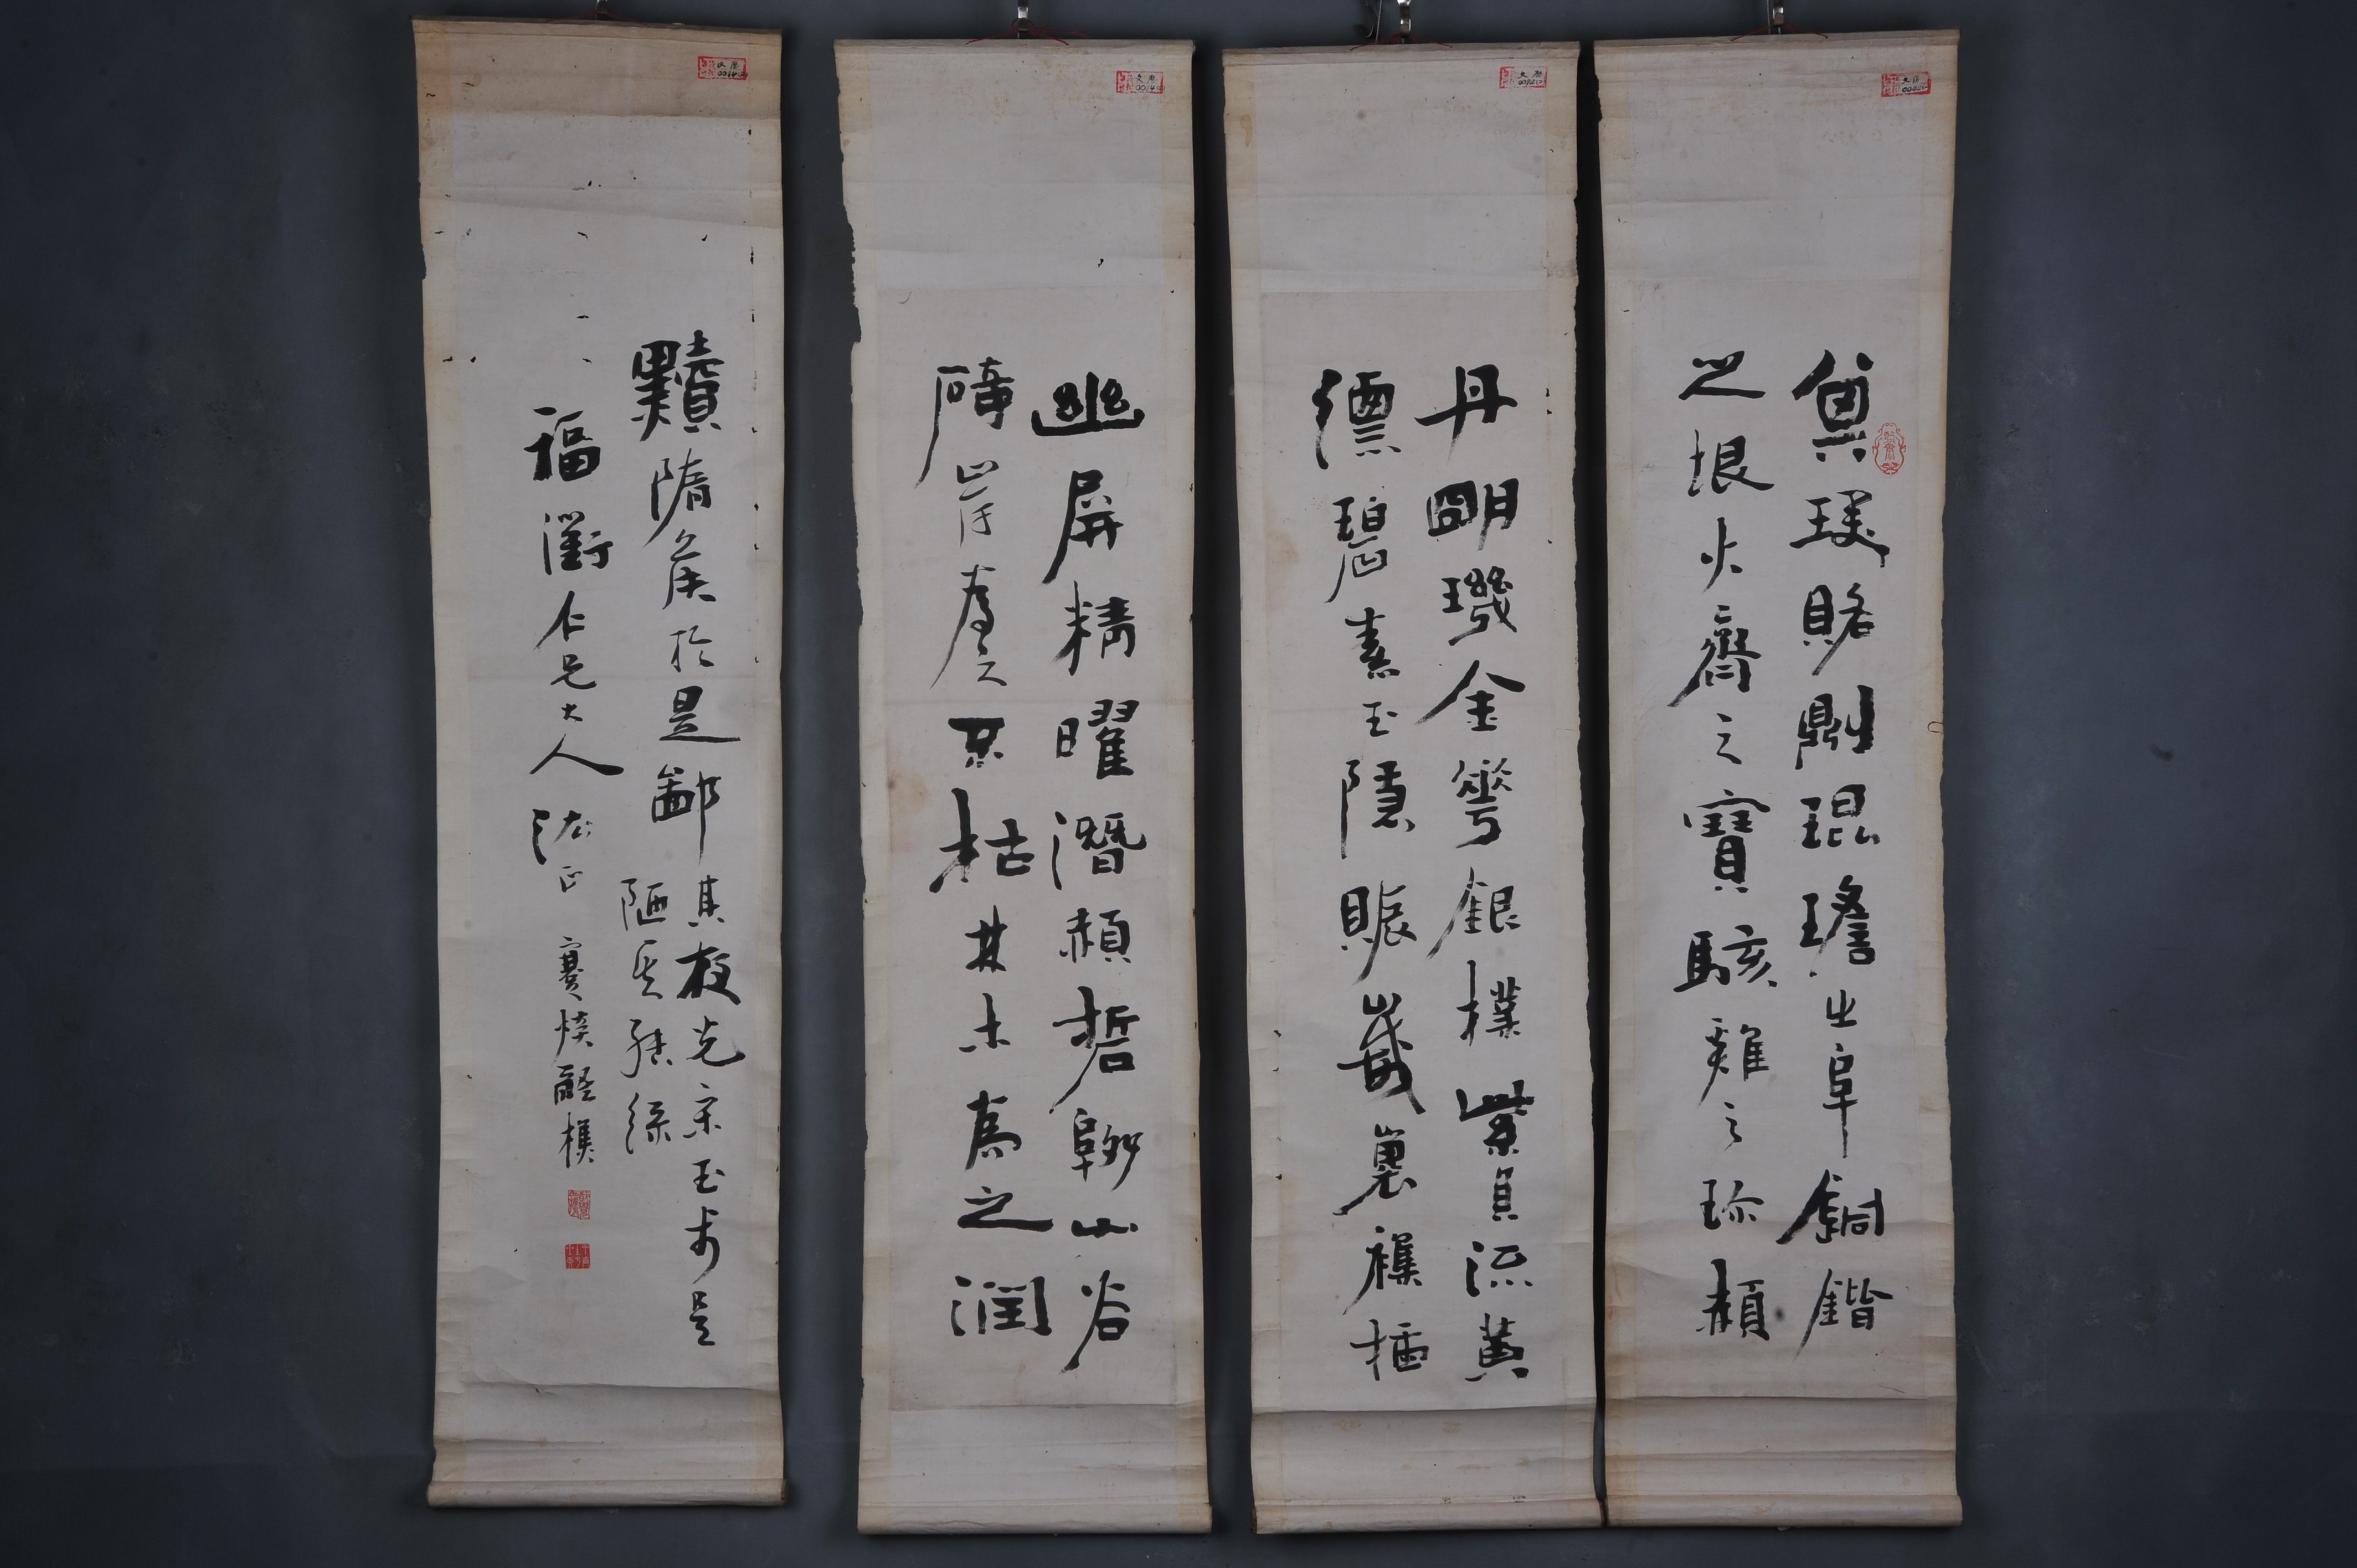 其琛賂則琨瑤之阜銅鍇
之垠火齊之寶駭雞之珍赬
丹明璣金華銀樸紫貝流黃
縹碧素玉隱賑崴裹襍插
幽屏精曜潛穎硩陊山谷
碕岸為之不枯林木為之潤
黷隋侯於是鄙其夜光宋玉於是
陋其結綠
福衢仁兄大人 法正